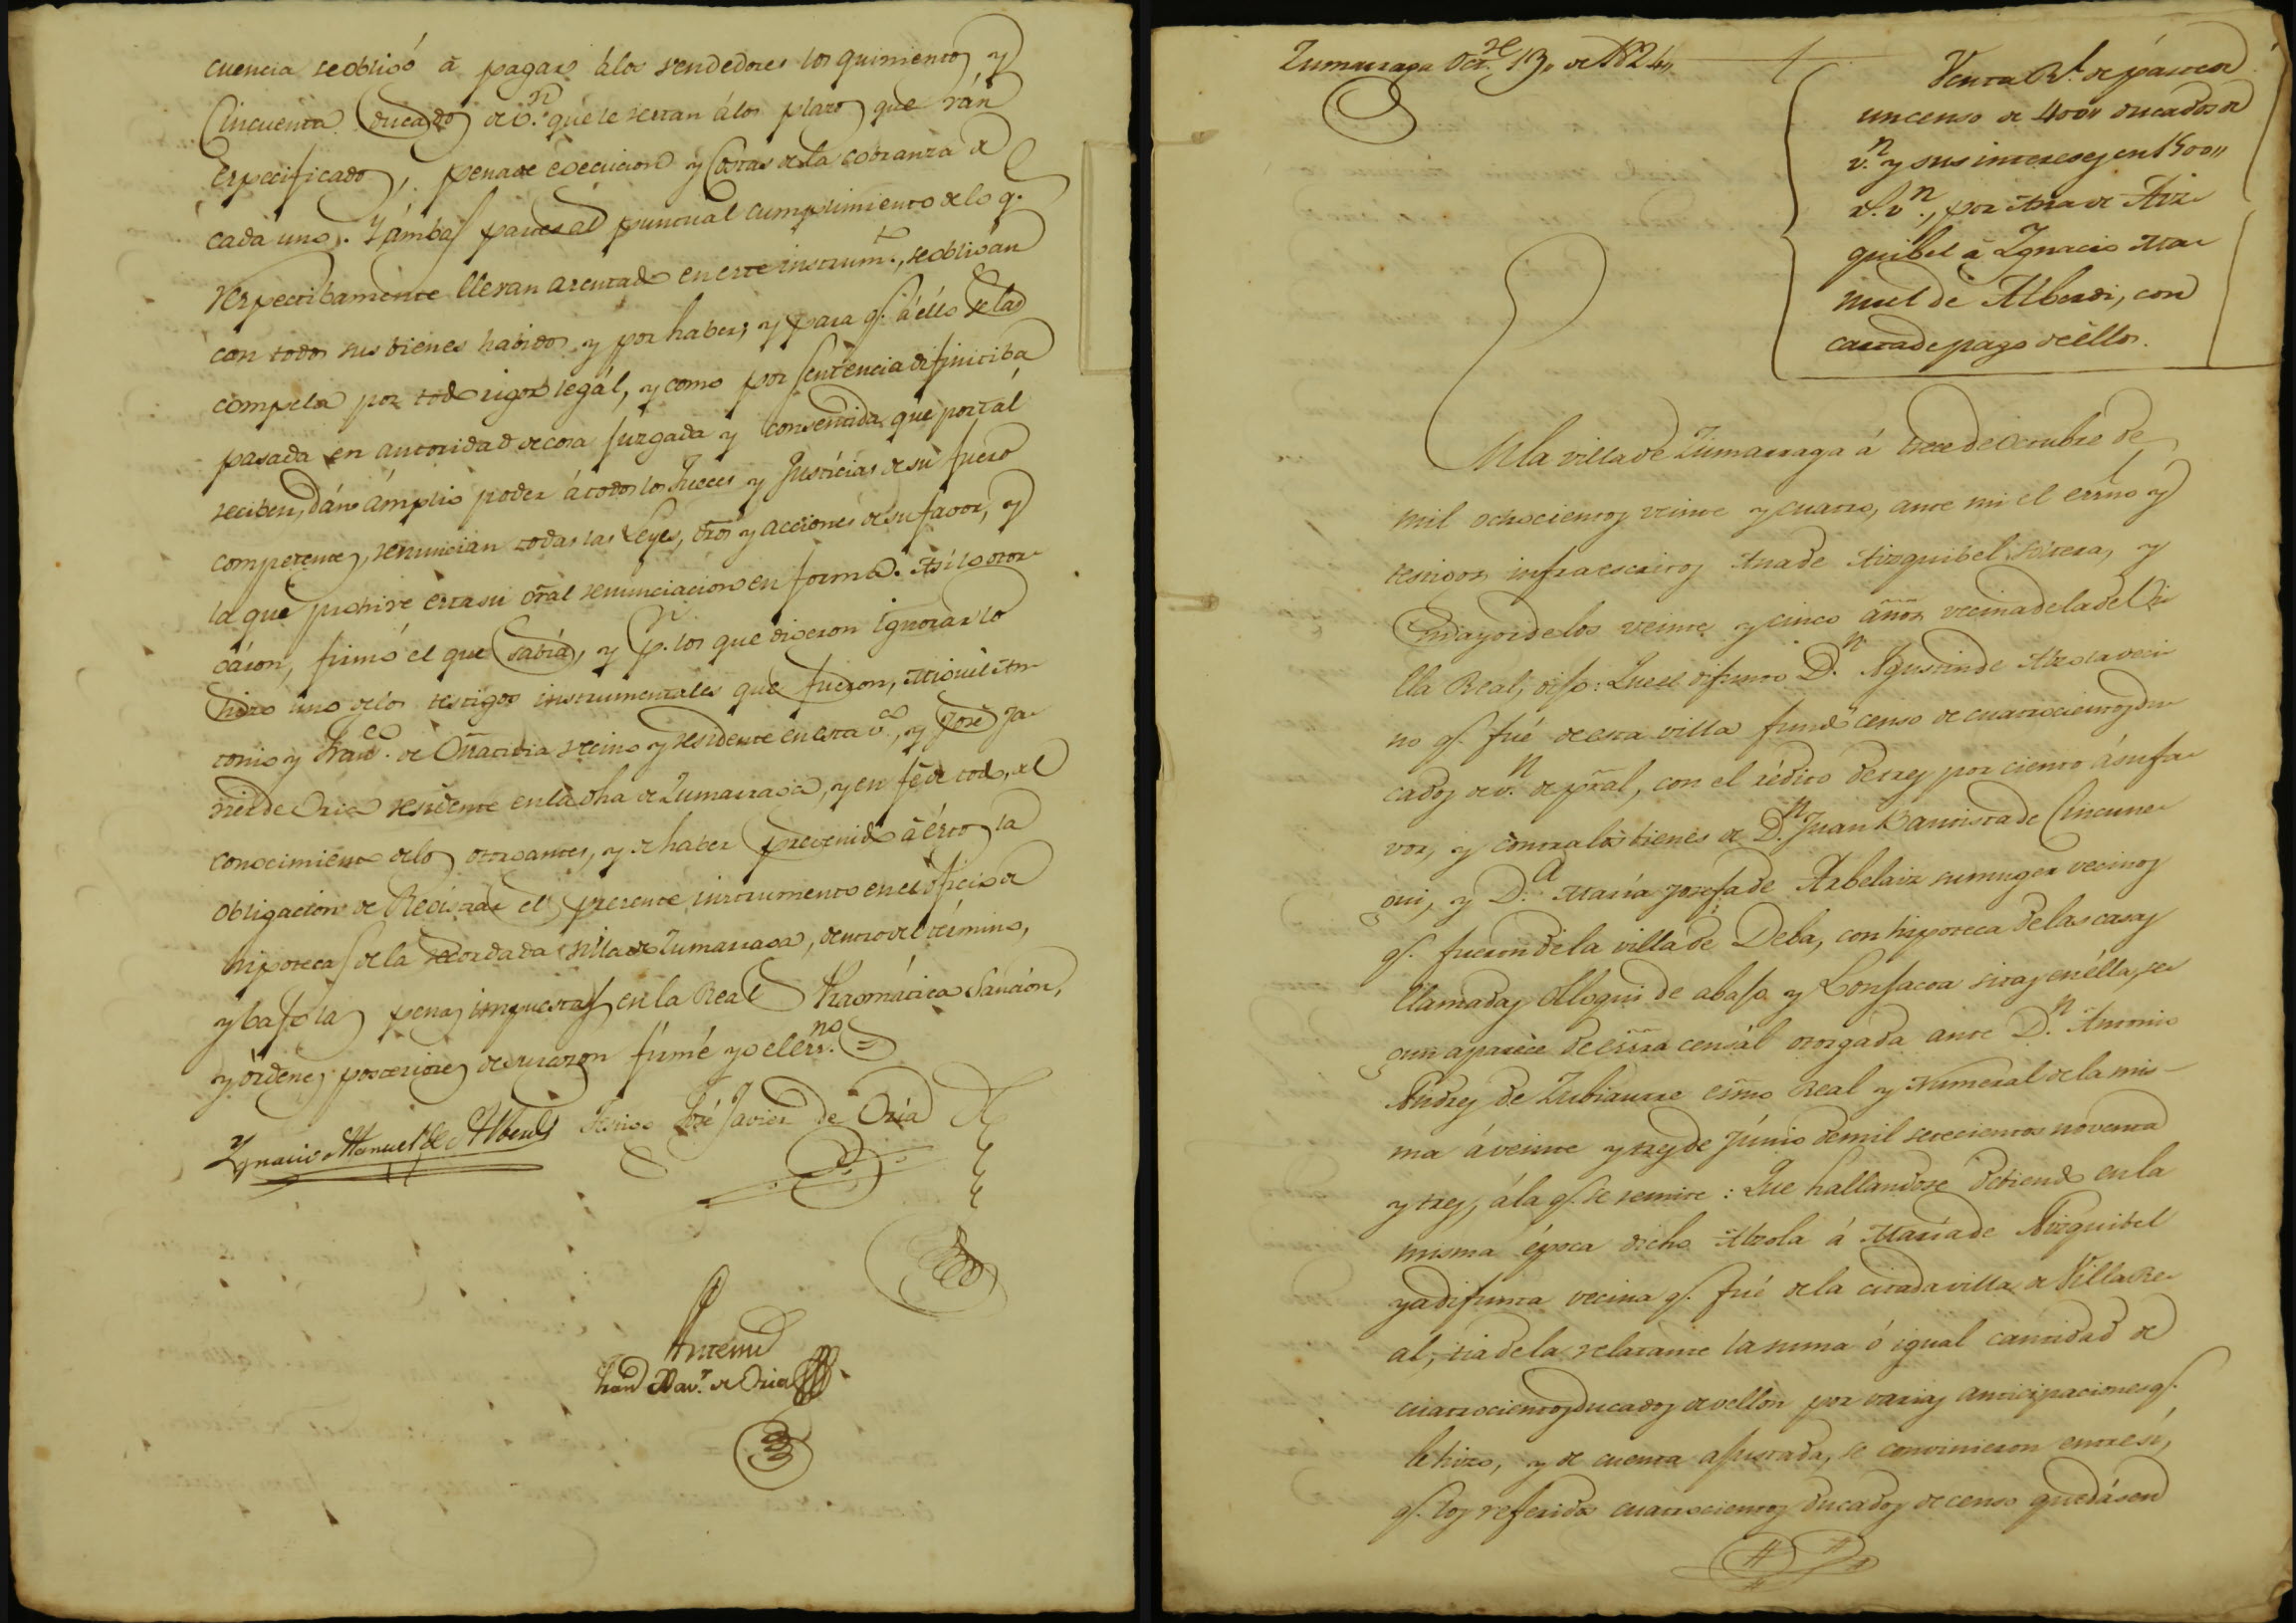 cuencia se obligó á pagar á los vendedores los quinientos y
Cincuenta ducados de v.n que le restan á los plazos que ván
Especificados, pena de execucion y Costas de la cobranza de
cada uno. Y ámbas partes al puntual cumplimiento de lo q.
respectibamente llevan asentado en este instrum.to, se obligan
con todos sus bienes habidos y por haber; y para q.e á ello se las
compela por todo rigor legál, y como por Sentencia difinitiba
pasada en autoridad de cosa juzgada y consentida, que por tál
reciben, dán ámplio poder á todos los Jueces y Justicias de su fuero
competente, renuncian todas las Leyes, dros y acciones de su favor, y
la que prohive esta su gral renunciacion en forma. Asi lo otor-
gáron, firmó el que Sabía, y p.r los que dixeron ignorarlo
hizo uno de los testigos instrumentales que fueron, Miguel An-
tonio y Fran.co de Oñatibia vecino y residente en esta v.a, y José Ja-
vier de Oria residente en la dha de Zumarraga, y en fé de todo, del
conocimiento de los otorgantes, y de haber prevenido á éstos la
obligacion de Registrar el presente instrumento en el oficio de
hipotecas de la recordada villa de Zumarraga, dentro del término,
y bajo las penas impuestas en la Real Pragmática Sanción,
y órdenes posteriores de su razon firmé yo el ess.no =
Ygnacio Manuel de Alberdi Testigo José Javier de Oria
Antemi
Fran.co Xav.r de Oria
Zumarraga Oct.re 13,, de 1824,,
Venta R.l de párte de
un censo de 400,, ducados de
v.n y sus intereses en 1500,,
r.s v.n, por Ana de Aiz-
quibel á Ygnacio Ma-
nuel de Alberdi, con
carta de pago de éllos.
En la villa de Zumarraga á trece de Octubre de
mil ochocientos veinte y cuatro, ante mi el essno y
testigos infraescritos Ana de Aizquibel Soltera, y
mayor de los veinte y cinco años vecina de la de Vi-
lla Real, dijo: Que el difunto D.n Agustin de Alzola veci-
no q.e fué de esta villa fundó censo de cuatrocientos du-
cados de v.n de pral, con el rédito de tres por ciento á su fa-
vor, y contra los bienes de D.n Juan Bautista de Cincune-
gui, y D.a María Josefa de Arbelaiz su muger vecinos
q.e fueron de la villa de Deba, con hipoteca de las casas
llamadas Olloqui de abajo y Lonjacoa sitas en élla, se-
gun aparece de essra censál otorgada ante D.n Antonio
Andres de Zubiaurre essno Real y Numeral de la mis-
ma á veinte y tres de Júnio de mil setecientos noventa
y tres, á la q.e se remite: Que hallandose debiendo en la
misma época dicho Alzola á María de Aizquibel
ya difunta vecina q.e fué de la citada villa de Villa Re-
al, tia de la relatante la suma ó igual cantidad de
cuatrocientos ducados de vellon por varias anticipaciones q.e
le hizo, y de cuenta ajustada, se convinieron entre sí,
q.e los referidos cuatrocientos ducados de censo quedásen